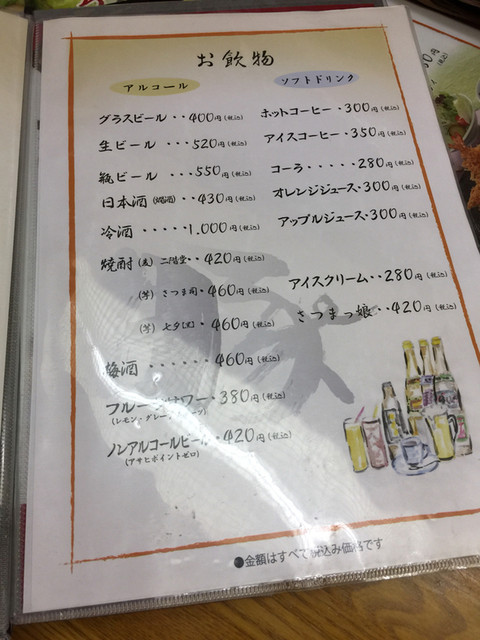 お飲物
アルコール
グラスビール・・400円(税込)
生ビール・・・520円(税込)
瓶ビール・・・550円(税込)
日本酒・・430円(税込)
冷酒・・・・・1.000円(税込)
焼酎(麦)二階堂・・420円(税込)
(芋)さつま司・460円(税込)
(芋)七夕・460円(税込)
梅酒・・・・・・460円(税込)
・380円(税込)
ノンアルコールビール・420円(税込)
(アサヒポイントゼロ)
ソフトドリンク
ホットコーヒー・300円(税込)
アイスコーヒー・350円(税込)
コーラ・・・・・280円(税込)
オレンジジュース・300円(税込)
アップルジュース・300円(税込)
アイスクリーム・・280円(税込)
さつまっ娘・・420円(税込)
●金額はすべて税込み価格です